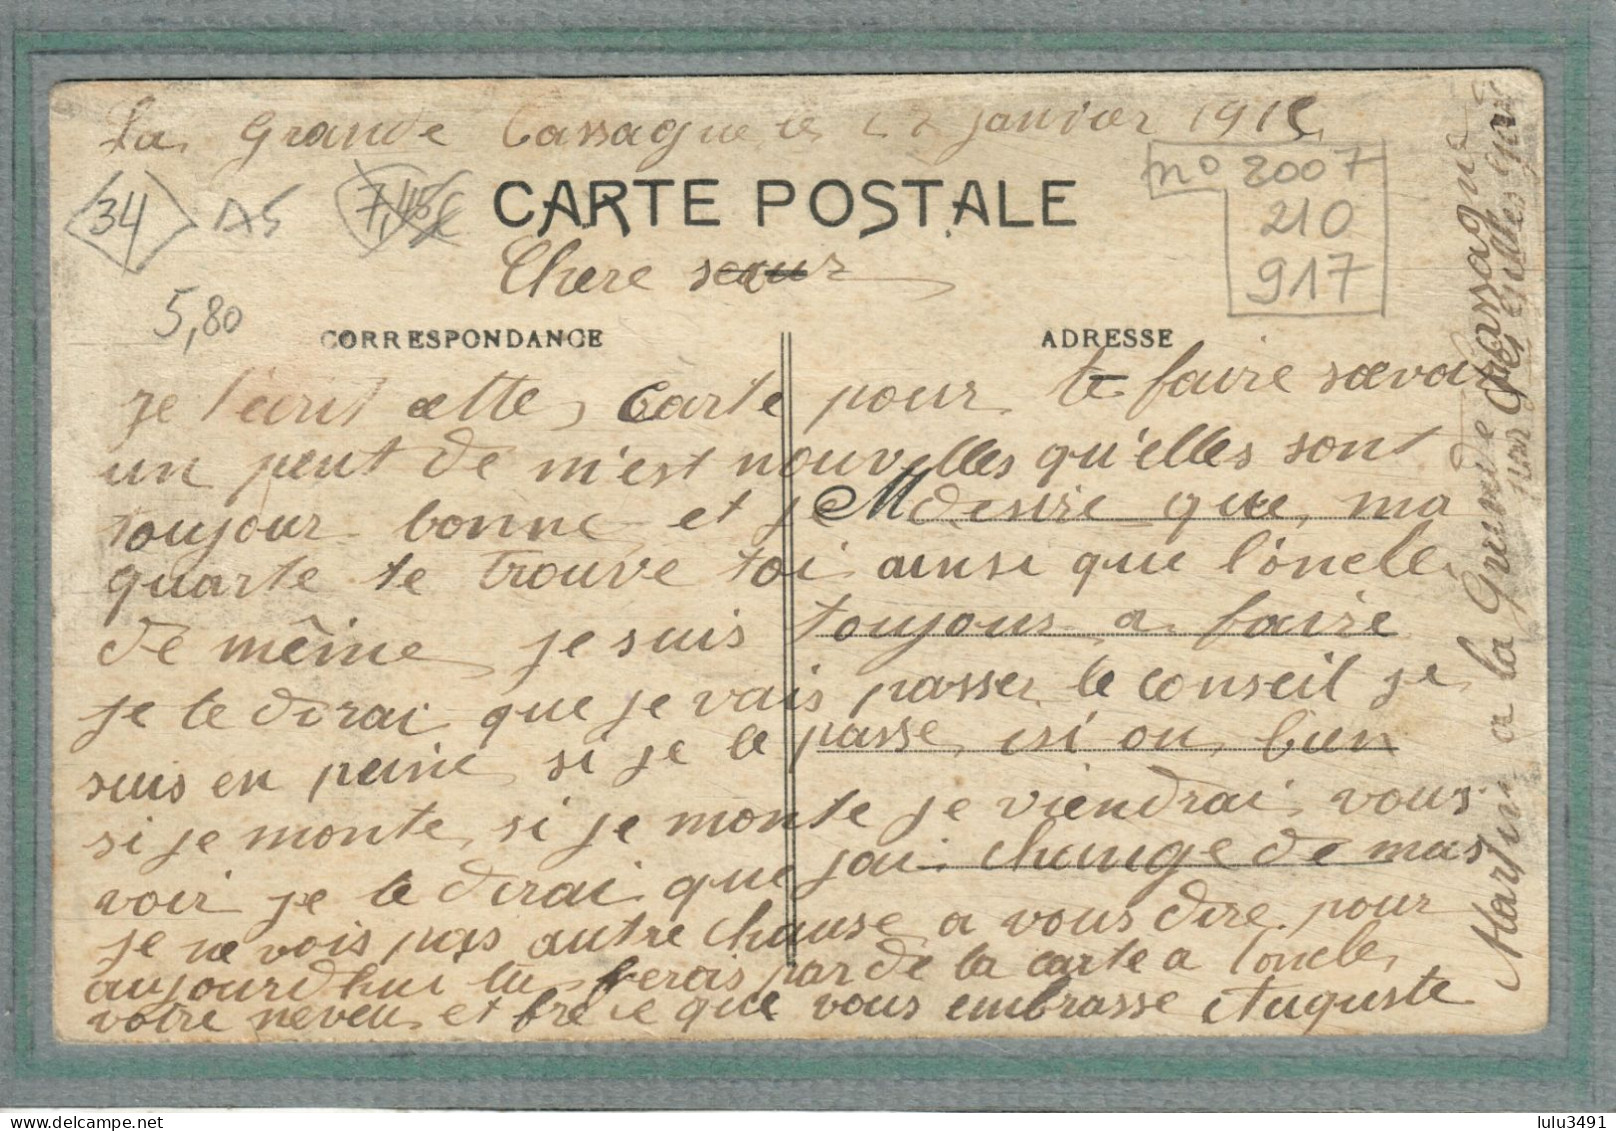 La Grande Cassagne le 22 janvier 191
34 AS 7,45€ CARTE POSTALE n° 2007
210
917
Chere sœur
5,80
CORRESPONDANCE ADRESSE
je t'ecrit cette carte pour te faire savoir
un peut de m'est nouvelles qu'elles sont
toujour bonne et je desire que ma
quarte te trouve toi ainsi que l'oncle
de même je suis toujous a faire
je te dirai que je vais passer le conseil je
suis en peine si je le passe isi ou bien
si je monte si je monte je viendrai vous
voir je te dirai que jai change de mas
je ne vois pas autre chause a vous dire pour
aujourdhui tu ferais par de la carte a loncle
votre neveu et frere que vous embrasse Auguste
Martin a la Grande Cassagne
par St Gilles Gard
lulu3491